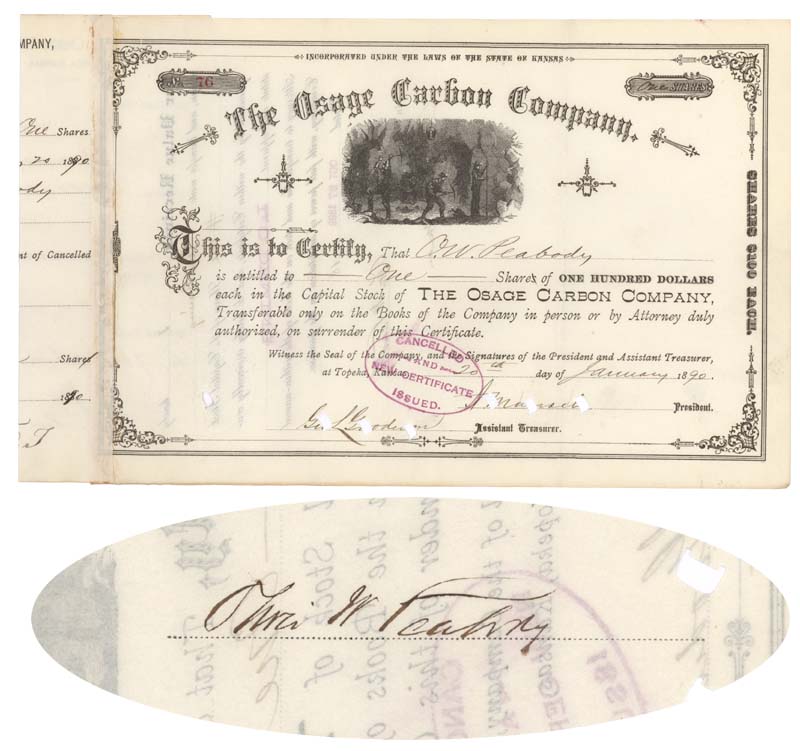 MPANY,
One Shares
20 1890
ody
nt of Cancelled
Shares
1890
INCORPORATED UNDER THE LAWS OF THE STATE OF KANSAS
No. 76
One SHARES
The Osage Carbon Company.
This is to Certify, That O.W. Peabody
is entitled to One Shares of ONE HUNDRED DOLLARS
each in the Capital Stock of THE OSAGE CARBON COMPANY,
Transferable only on the Books of the Company in person or by Attorney duly
authorized, on surrender of this Certificate.
Witness the Seal of the Company, and the Signatures of the President and Assistant Treasurer,
at Topeka, Kansas 20th day of January 1890.
CANCELLED
AND
NEW CERTIFICATE
ISSUED.
President.
Geo L Goodwin Assistant Treasurer.
SHARES $100 EACH.
Oliver W Peabody